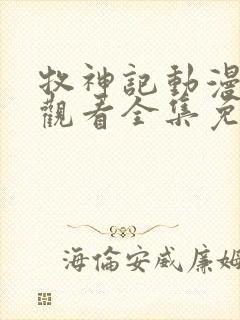 牧神記動漫
觀看全集免
海倫安威廉姆